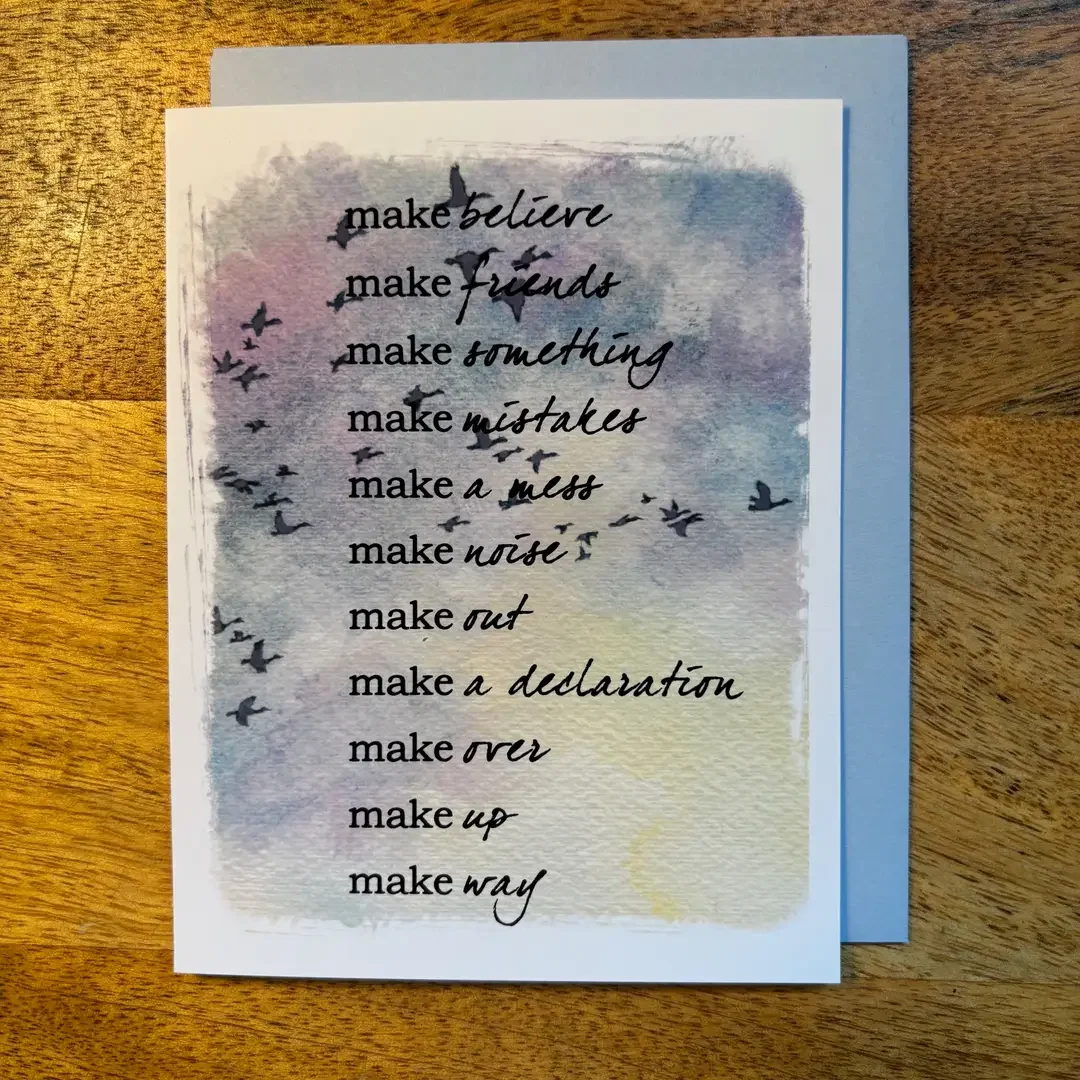 make believe
make friends
make something
make mistakes
make a mess
make noise
make out
make a declaration
make over
make up
make way